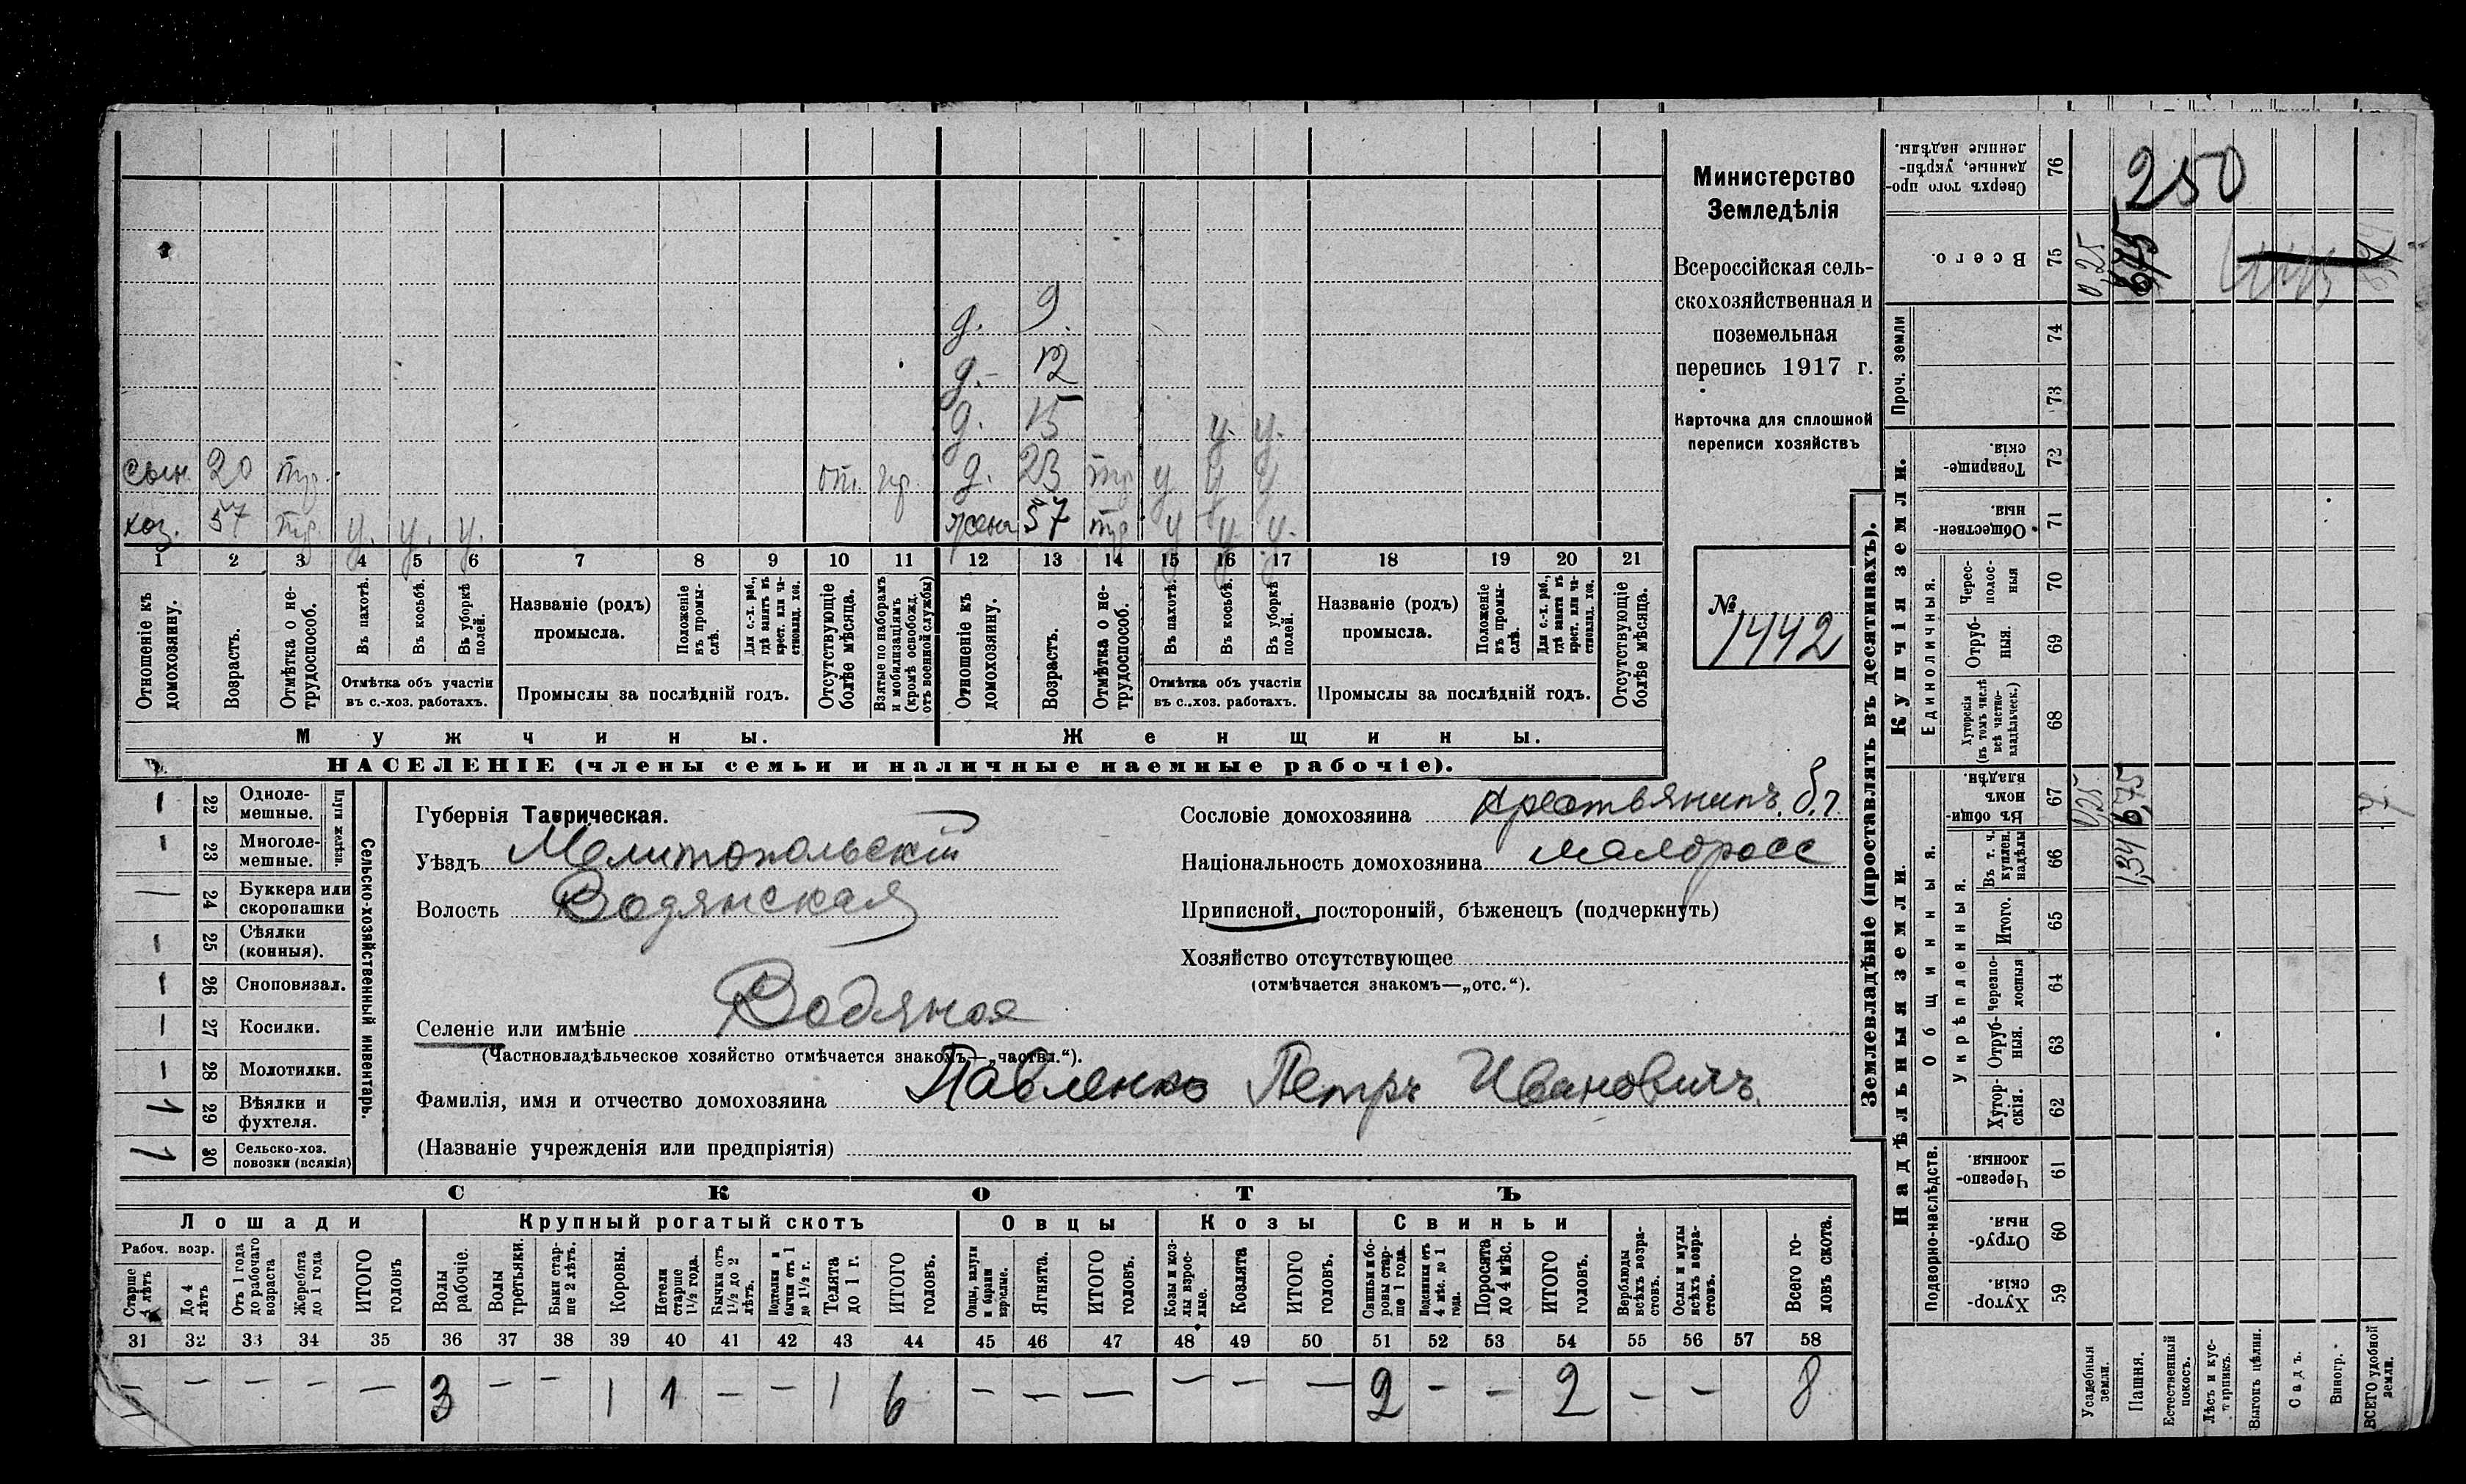 Министерство
Земледѣлія
Всероссійская сель-
скохозяйственная и
поземельная
перепись 1917 г.
Карточка для сплошной
переписи хозяйствъ
№
1442
д. 9.
д. 12
д. 15 у. у.
сын. 20 тр. от. д. 23 тр у у у
хоз. 57 тр. у. у. у. жена 57 тр у у. у.
1 2 3 4 5 6 7 8 9 10 11 12 13 14 15 16 17 18 19 20 21
Отношеніе къ домохозяину.
Возрастъ.
Отмѣтка о не-трудоспособ.
Въ пахотѣ.
Въ косьбѣ.
Въ уборкѣ полей.
Отмѣтка объ участіи
въ с.-хоз. работахъ.
Названіе (родъ)
промысла.
Положеніе въ промы-слѣ.
Для с.-х. раб., гдѣ занятъ въ крест. или ча-стновлад. хоз.
Промыслы за послѣдній годъ.
Отсутствующіе болѣе мѣсяца.
Взятые по наборамъ и мобилизаціямъ (кромѣ освобожд. отъ военной службы)
Отношеніе къ домохозяину.
Возрастъ.
Отмѣтка о не-трудоспособ.
Въ пахотѣ.
Въ косьбѣ.
Въ уборкѣ полей.
Отмѣтка объ участіи
въ с.-хоз. работахъ.
Названіе (родъ)
промысла.
Положеніе въ промы-слѣ.
Для с.-х. раб., гдѣ занята въ крест. или ча-стновлад. хоз.
Промыслы за послѣдній годъ.
Отсутствующіе болѣе мѣсяца.
Мужчины. Женщины.
НАСЕЛЕНІЕ (члены семьи и наличные наемные рабочіе).
Сельско-хозяйственный инвентарь.
Плуги желѣзн.
— 22 Одноле-мешные.
— 23 Многоле-мешные.
— 24 Буккера или скоропашки
— 25 Сѣялки (конныя).
— 26 Сноповязал.
— 27 Косилки.
— 28 Молотилки.
1 29 Вѣялки и фухтеля.
1 30 Сельско-хоз. повозки (всякія)
Губернія Таврическая.
Уѣздъ Мелитопольскій
Волость Водянская
Селеніе или имѣніе Водяное
(Частновладѣльческое хозяйство отмѣчается знакомъ—„частвл.“).
Фамилія, имя и отчество домохозяина Павленко Петръ Ивановичъ.
(Названіе учрежденія или предпріятія)
Сословіе домохозяина крестьянинъ.
Національность домохозяина малоросс
Приписной, посторонній, бѣженецъ (подчеркнуть)
Хозяйство отсутствующее
(отмѣчается знакомъ—„отс.“).
СКОТЪ
Лошади Крупный рогатый скотъ Овцы Козы Свиньи
Рабоч. возр.
Старше 4 лѣтъ
До 4 лѣтъ
Отъ 1 года до рабочаго возраста
Жеребята до 1 года
ИТОГО головъ
Волы рабочіе.
Волы третьяки.
Быки стар-ше 2 лѣтъ.
Коровы.
Нетели старше 1½ года.
Бычки отъ 1½ до 2 лѣтъ.
Подтелки и бычки отъ 1 до 1½ г.
Телята до 1 г.
ИТОГО головъ.
Овцы, валухи и бараны взрослые.
Ягнята.
ИТОГО головъ.
Козы и коз-лы взрос-лые.
Козлята
ИТОГО головъ.
Свиньи и бо-ровы стар-ше 1 года.
Подсвинки отъ 4 мѣс. до 1 года.
Поросята до 4 мѣс.
ИТОГО головъ.
Верблюды всѣхъ возра-стовъ.
Ослы и мулы всѣхъ возра-стовъ.
Всего го-ловъ скота.
31 32 33 34 35 36 37 38 39 40 41 42 43 44 45 46 47 48 49 50 51 52 53 54 55 56 57 58
— — — — — 3 — — 1 1 — — 1 6 — — — — — — 2 — — 2 — — 8
Землевладѣніе (проставлять въ десятинахъ).
Надѣльныя земли. Купчія земли. Проч. земли
Подворно-наслѣдств. Общинныя. Укрѣпленныя. Единоличныя.
Сверхъ того про-данные, укрѣп-ленные надѣлы. 76 250
Всего. 75 0,25
74
73
Товарище-скія. 72
Обществен-ныя. 71
Черес-полос-ныя 70
Отруб-ныя. 69
Хуторскія (въ томъ числѣ всѣ частно-владѣльческ.) 68
Въ общин-номъ владѣн. 67 0,25 6,75 7
Въ т. ч. куплен. надѣлы 66 1,34
Итого. 65
Черезпо-лосныя 64
Отруб-ныя. 63
Хутор-скія. 62
Черезпо-лосныя. 61
Отруб-ныя. 60
Хутор-скія. 59
Усадебныя земли.
Пашня.
Естественный покосъ.
Лѣсъ и кус-тарникъ.
Выгонъ цѣлин.
Садъ.
Виногр.
ВСЕГО удобной земли.